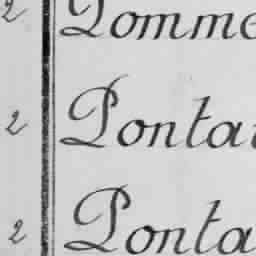 2 Pomme
2 Ponta
2 Ponta